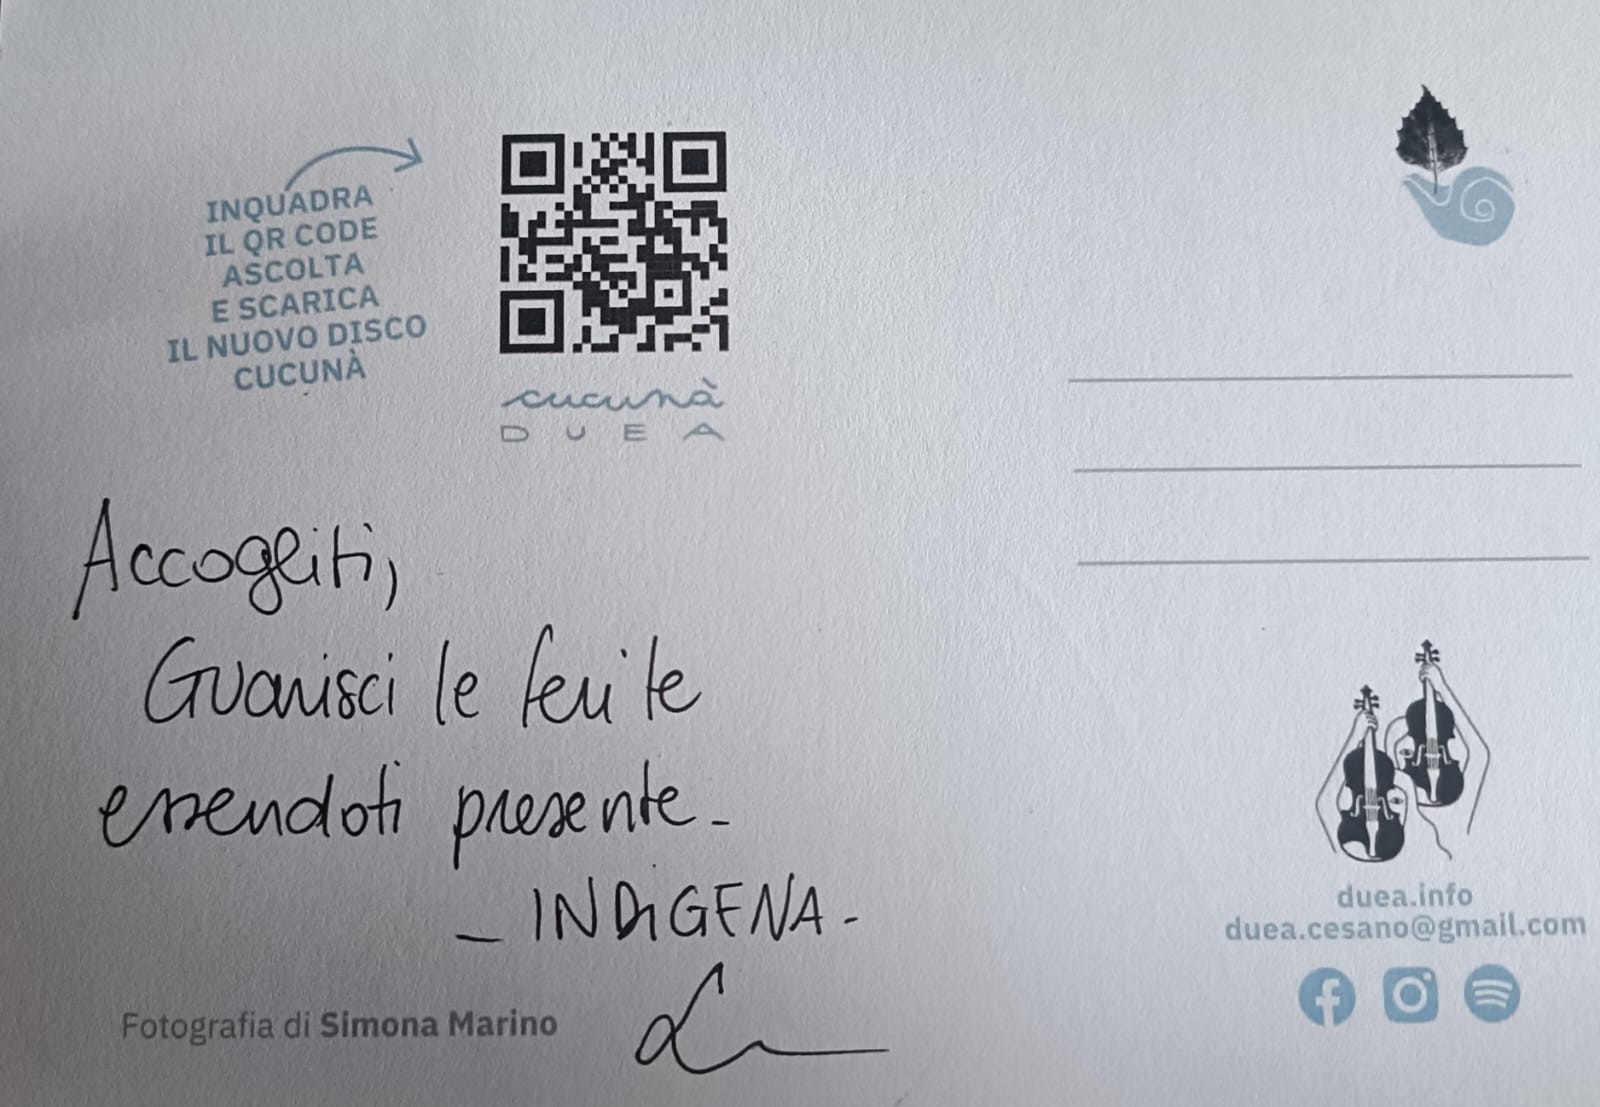 INQUADRA
IL QR CODE
ASCOLTA
E SCARICA
IL NUOVO DISCO
CUCUNÀ
cucunà
DUEA
Accogliti,
Guarisci le ferite
essendoti presente_
_ INDiGENA -
Fotografia di Simona Marino
duea.info
duea.cesano@gmail.com